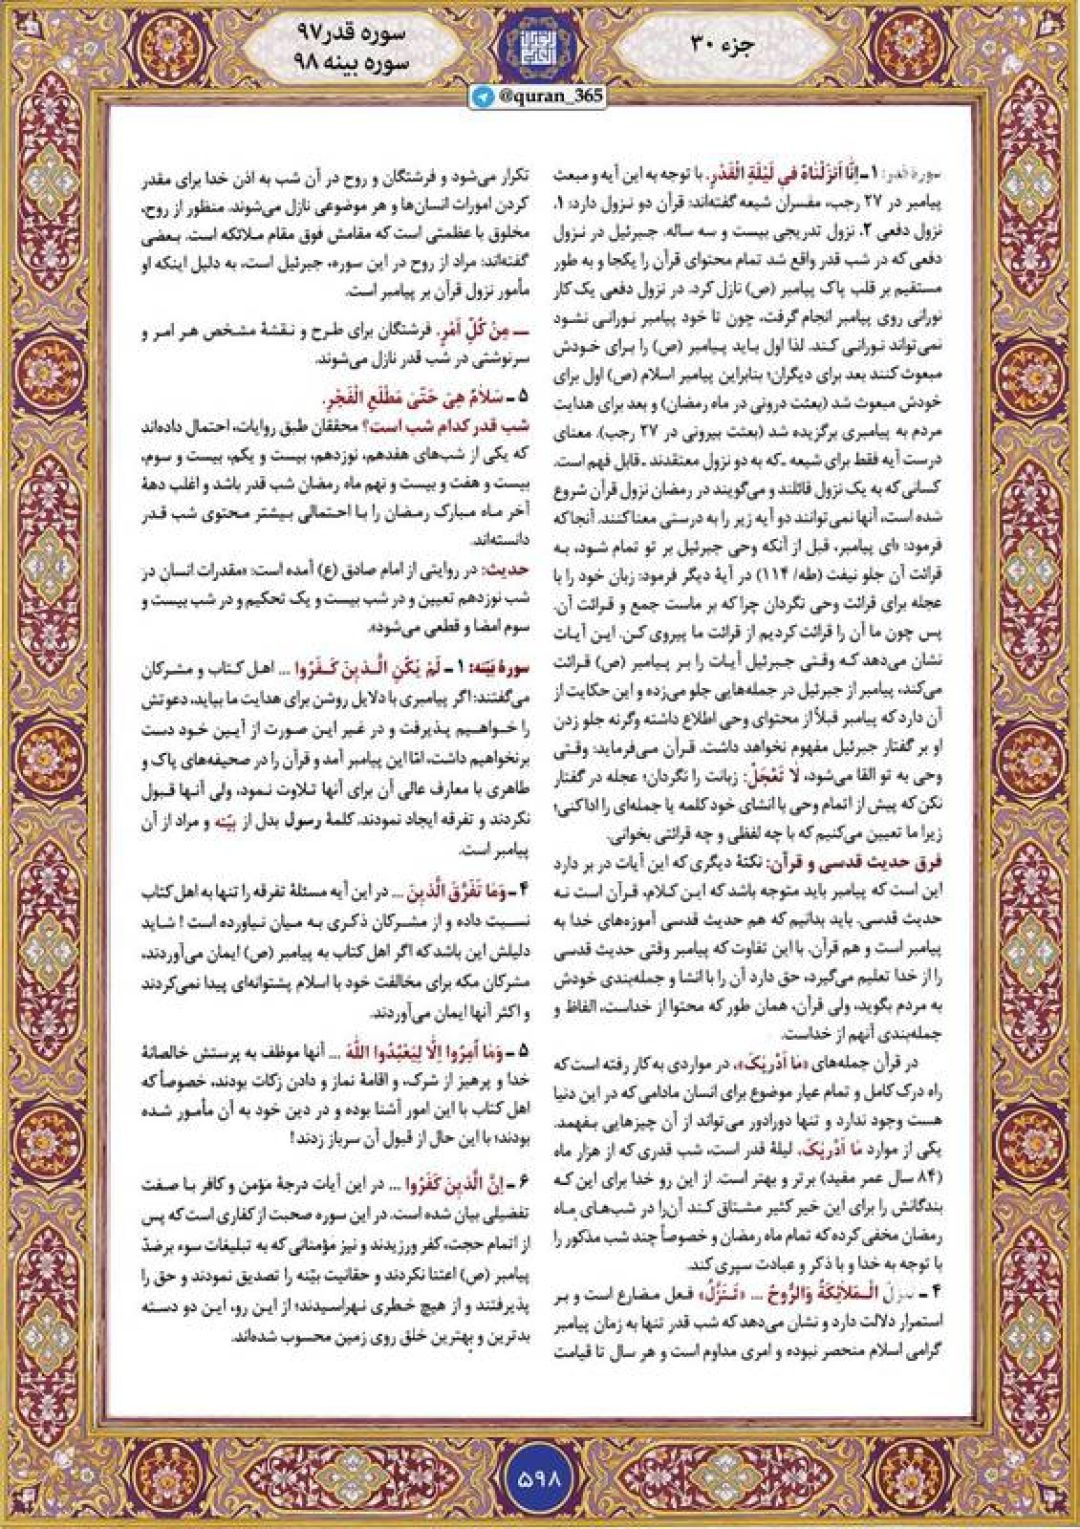 جزء ۳۰
سوره قدر۹۷
سوره بینه ۹۸
@quran_365
سورهٔ قدر: ۱ـ اِنّٰا اَنْزَلْنٰاهُ فی لَیْلَةِ الْقَدْرِ. با توجه به این آیه و مبعث
پیامبر در ۲۷ رجب، مفسران شیعه گفته‌اند: قرآن دو نزول دارد: ۱.
نزول دفعی ۲. نزول تدریجی بیست و سه ساله. جبرئیل در نزول
دفعی که در شب قدر واقع شد تمام محتوای قرآن را یکجا و به طور
مستقیم بر قلب پاک پیامبر (ص) نازل کرد. در نزول دفعی یک کار
نورانی روی پیامبر انجام گرفت، چون تا خود پیامبر نورانی نشود
نمی‌تواند نورانی کند. لذا اول باید پیامبر (ص) را برای خودش
مبعوث کنند بعد برای دیگران؛ بنابراین پیامبر اسلام (ص) اول برای
خودش مبعوث شد (بعثت درونی در ماه رمضان) و بعد برای هدایت
مردم به پیامبری برگزیده شد (بعثت بیرونی در ۲۷ رجب). معنای
درست آیه فقط برای شیعه ـ که به دو نزول معتقدند ـ قابل فهم است.
کسانی که به یک نزول قائلند و می‌گویند در رمضان نزول قرآن شروع
شده است، آنها نمی‌توانند دو آیه زیر را به درستی معنا کنند. آنجا که
فرمود: «ای پیامبر، قبل از آنکه وحی جبرئیل بر تو تمام شود، به
قرائت آن جلو نیفت (طه/ ۱۱۴) در آیهٔ دیگر فرمود: زبان خود را با
عجله برای قرائت وحی نگردان چرا که بر ماست جمع و قرائت آن.
پس چون ما آن را قرائت کردیم از قرائت ما پیروی کن. این آیات
نشان می‌دهد که وقتی جبرئیل آیات را بر پیامبر (ص) قرائت
می‌کند، پیامبر از جبرئیل در جمله‌هایی جلو می‌زده و این حکایت از
آن دارد که پیامبر قبلاً از محتوای وحی اطلاع داشته وگرنه جلو زدن
او بر گفتار جبرئیل مفهوم نخواهد داشت. قرآن می‌فرماید: وقتی
وحی به تو القا می‌شود، لٰا تَعْجَلْ: زبانت را نگردان؛ عجله در گفتار
نکن که پیش از اتمام وحی با انشای خود کلمه یا جمله‌ای را ادا کنی؛
زیرا ما تعیین می‌کنیم که با چه لفظی و چه قرائتی بخوانی.
فرق حدیث قدسی و قرآن: نکتهٔ دیگری که این آیات در بر دارد
این است که پیامبر باید متوجه باشد که این کلام، قرآن است نه
حدیث قدسی. باید بدانیم که هم حدیث قدسی آموزه‌های خدا به
پیامبر است و هم قرآن، با این تفاوت که پیامبر وقتی حدیث قدسی
را از خدا تعلیم می‌گیرد، حق دارد آن را با انشا و جمله‌بندی خودش
به مردم بگوید، ولی قرآن، همان طور که محتوا از خداست، الفاظ و
جمله‌بندی آنهم از خداست.
در قرآن جمله‌های «مٰا اَدْریٰکَ»، در مواردی به کار رفته است که
راه درک کامل و تمام عیار موضوع برای انسان مادامی که در این دنیا
هست وجود ندارد و تنها دورادور می‌تواند از آن چیزهایی بفهمد.
یکی از موارد مٰا اَدْریٰکَ، لیلهٔ قدر است، شب قدری که از هزار ماه
(۸۴ سال عمر مفید) برتر و بهتر است. از این رو خدا برای این که
بندگانش را برای این خیر کثیر مشتاق کند آن را در شب‌های ماه
رمضان مخفی کرده که تمام ماه رمضان و خصوصاً چند شب مذکور را
با توجه به خدا و با ذکر و عبادت سپری کند.
۴ ـ تَنَزَّلُ الْمَلٰائِکَةُ وَالرُّوحُ ... «تَنَزَّلُ» فعل مضارع است و بر
استمرار دلالت دارد و نشان می‌دهد که شب قدر تنها به زمان پیامبر
گرامی اسلام منحصر نبوده و امری مداوم است و هر سال تا قیامت
تکرار می‌شود و فرشتگان و روح در آن شب به اذن خدا برای مقدر
کردن امورات انسان‌ها و هر موضوعی نازل می‌شوند. منظور از روح،
مخلوق با عظمتی است که مقامش فوق مقام ملائکه است. بعضی
گفته‌اند: مراد از روح در این سوره، جبرئیل است، به دلیل اینکه او
مأمور نزول قرآن بر پیامبر است.
ـــ مِنْ کُلِّ اَمْرٍ. فرشتگان برای طرح و نقشهٔ مشخص هر امر و
سرنوشتی در شب قدر نازل می‌شوند.
۵ ـ سَلٰامٌ هِیَ حَتّیٰ مَطْلَعِ الْفَجْرِ.
شب قدر کدام شب است؟ محققان طبق روایات، احتمال داده‌اند
که یکی از شب‌های هفدهم، نوزدهم، بیست و یکم، بیست و سوم،
بیست و هفت و بیست و نهم ماه رمضان شب قدر باشد و اغلب دههٔ
آخر ماه مبارک رمضان را با احتمالی بیشتر محتوی شب قدر
دانسته‌اند.
حدیث: در روایتی از امام صادق (ع) آمده است: «مقدرات انسان در
شب نوزدهم تعیین و در شب بیست و یک تحکیم و در شب بیست و
سوم امضا و قطعی می‌شود».
سورهٔ بیّنه: ۱ ـ لَمْ یَکُنِ الَّذینَ کَفَرُوا ... اهل کتاب و مشرکان
می‌گفتند: اگر پیامبری با دلایل روشن برای هدایت ما بیاید، دعوتش
را خواهیم پذیرفت و در غیر این صورت از آیین خود دست
برنخواهیم داشت، امّا این پیامبر آمد و قرآن را در صحیفه‌های پاک و
طاهری با معارف عالی آن برای آنها تلاوت نمود، ولی آنها قبول
نکردند و تفرقه ایجاد نمودند. کلمهٔ رسول بدل از بیّنه و مراد از آن
پیامبر است.
۴ ـ وَمٰا تَفَرَّقَ الَّذینَ ... در این آیه مسئلهٔ تفرقه را تنها به اهل کتاب
نسبت داده و از مشرکان ذکری به میان نیاورده است ! شاید
دلیلش این باشد که اگر اهل کتاب به پیامبر (ص) ایمان می‌آوردند،
مشرکان مکه برای مخالفت خود با اسلام پشتوانه‌ای پیدا نمی‌کردند
و اکثر آنها ایمان می‌آوردند.
۵ ـ وَمٰا اُمِرُوا اِلّٰا لِیَعْبُدُوا اللّٰهَ ... آنها موظف به پرستش خالصانهٔ
خدا و پرهیز از شرک، و اقامهٔ نماز و دادن زکات بودند، خصوصاً که
اهل کتاب با این امور آشنا بوده و در دین خود به آن مأمور شده
بودند؛ با این حال از قبول آن سرباز زدند!
۶ ـ اِنَّ الَّذینَ کَفَرُوا ... در این آیات درجهٔ مؤمن و کافر با صفت
تفضیلی بیان شده است. در این سوره صحبت از کفاری است که پس
از اتمام حجت، کفر ورزیدند و نیز مؤمنانی که به تبلیغات سوء برضدّ
پیامبر (ص) اعتنا نکردند و حقانیت بیّنه را تصدیق نمودند و حق را
پذیرفتند و از هیچ خطری نهراسیدند؛ از این رو، این دو دسته
بدترین و بهترین خلق روی زمین محسوب شده‌اند.
۵۹۸